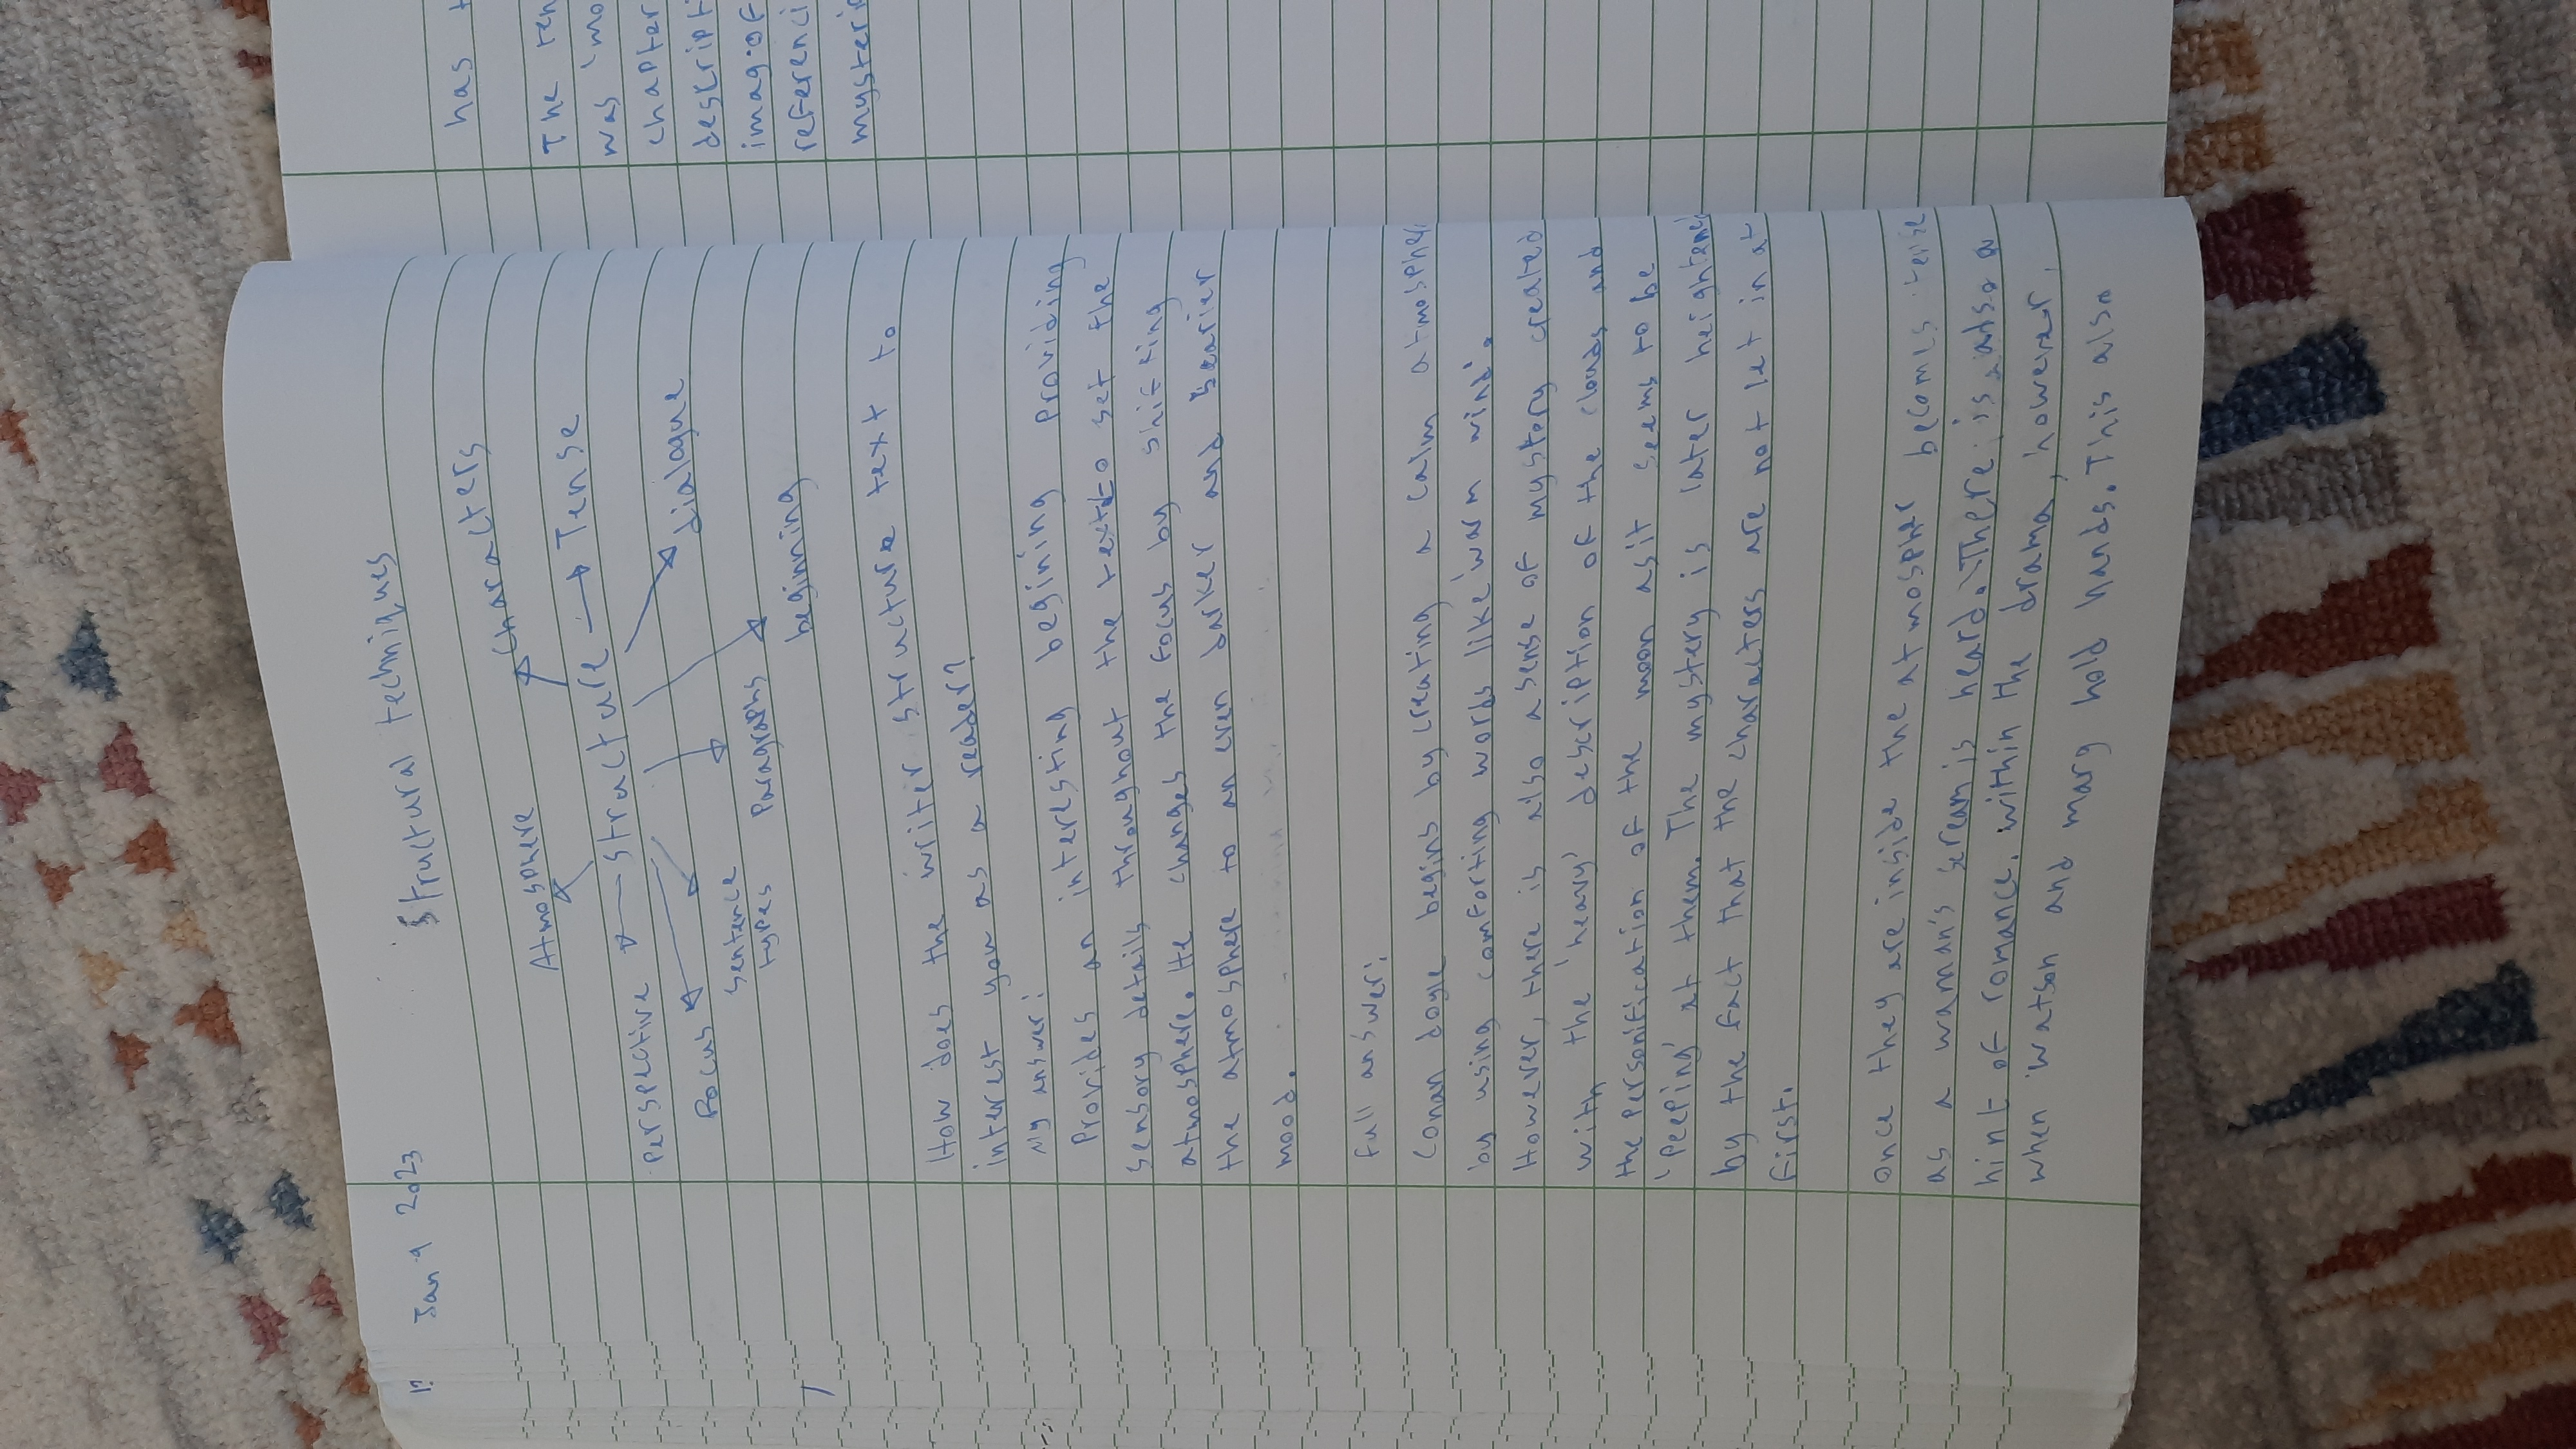 Jan 9 2023
Structural techniques
Characters
Atmosphere
structure
Tense
Perspective
Focus
dialogue
sentence
types
Paragraphs
beginning
How does the writer structure text to
interest you as a reader?
My answer:
Provides an interesting begining providing
sensory details throughout the text to set the
atmosphere. He changes the focus by shifting
the atmosphere to an even darker and scarier
mood.
full answer:
Conan doyle begins by creating a calm atmospher
by using comforting words like 'warm wind'.
However, there is also a sense of mystery created
with the 'heavy' description of the clouds and
the personification of the moon as it seems to be
'peeping' at them. The mystery is later heightened
by the fact that the characters are not let in at
first.
once they are inside the atmospher becomes tense
as a waman's scream is heard. There is also a
hint of romance. within the drama, however,
when watson and mary hold hands. This also
has t
The ren
was 'mo
chapter
descript
imag.of
referenci
mysteri